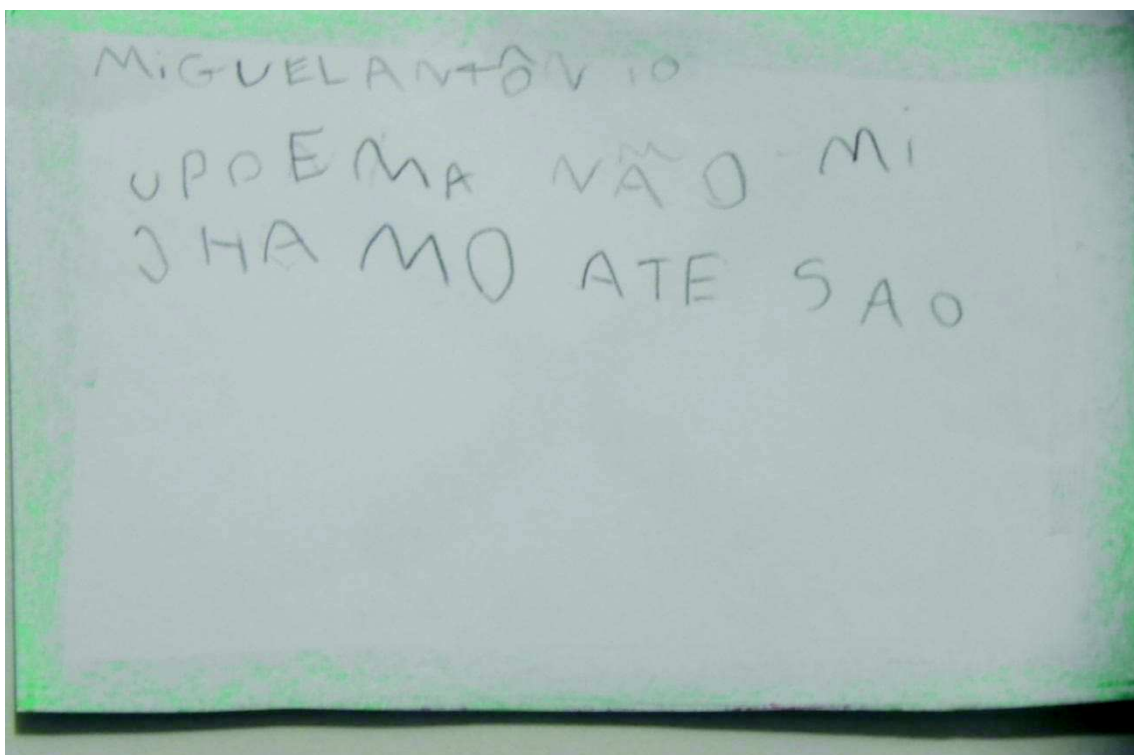 MIGUEL ANTÔNIO
UPOEMA NÃO MI
JHAMO ATE SAO